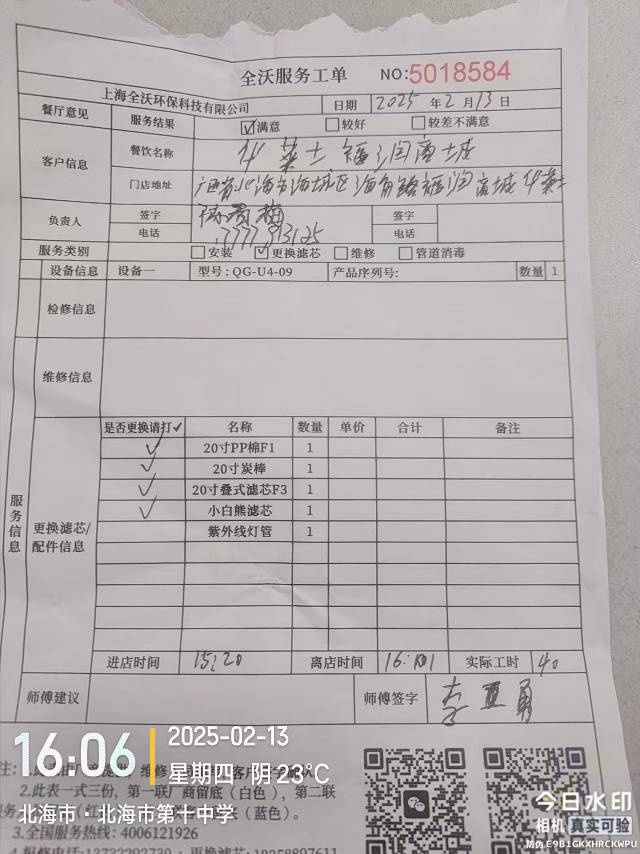 全沃服务工单 NO:5018584
上海全沃环保科技有限公司 日期 2025 年 2 月 13 日
餐厅意见 服务结果 ☑满意 □较好 □较差不满意
客户信息 餐饮名称 华莱士福润商城
门店地址 海城区 福润商城 华莱士
负责人 签字 签字
电话 电话
服务类别 □安装 ☑更换滤芯 □维修 □管道消毒
设备信息 设备一 型号:QG-U4-09 产品序列号: 数量 1
检修信息
维修信息
服务信息
更换滤芯/配件信息
是否更换请打✓ 名称 数量 单价 合计 备注
✓ 20寸PP棉F1 1
✓ 20寸炭棒 1
✓ 20寸叠式滤芯F3 1
✓ 小白熊滤芯 1
紫外线灯管 1
进店时间 15:20 离店时间 实际工时 40
师傅建议 师傅签字
16:06 2025-02-13
星期四 阴 23°C
北海市·北海市第一中学
2.此表一式三份，第一联厂商留底（白色），第二联
（蓝色）。
3.全国服务热线: 4006121926
今日水印
相机 真实可验
防伪 E9B1GKXHRCKWPU